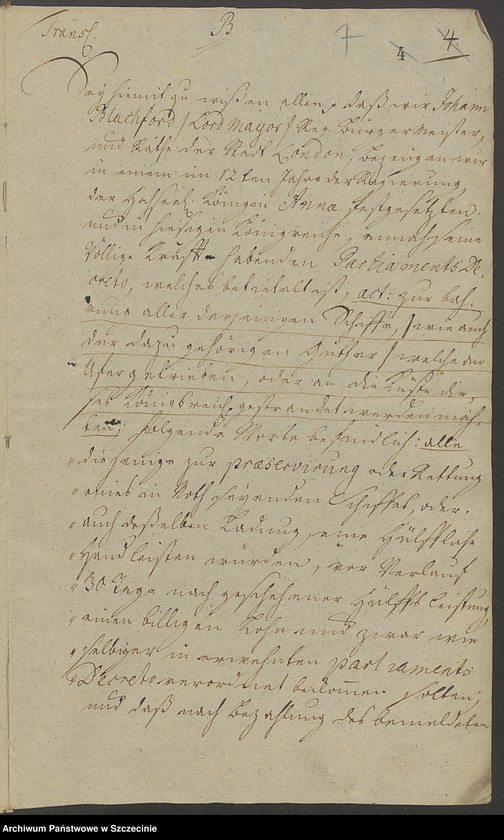 Transl.
B
7 4 4.
Sey hiemit zu wißen allen, daß wir Johann
Blachford / Lord Mayor / Reg. Bürgermeister,
und Räthe der Stadt London, bezeugen wir
in einem im 12ten Jahre der Regierung
der Hochseel. Königin Anna festgesetzten
und in hiesigen Königreiche, annoch seine
Völlige Krafft habenden Parliaments De-
creto, welches betietelt ist, act: zur bah-
rung aller derjenigen Schiffe, / wie auch
der dazu gehörigen Güther / welche an
Ufer getrieben, oder an die Küste die-
ses Königreichs gestrandet werden möch-
ten; folgende Worte befindlich: alle
diejenige zur præservirung oder Rettung
eines in Noth seyenden Schiffes, oder
auch deßelben Ladung, eine Hülffliche
Hand leisten würden, vor Verlauf
30 Tage nach geschehener Hülffs leistung
einen billigen Lohn und zwar wie
selbiger in erwehnten parliaments
Decreto verordnet bekommen solten;
und daß nach Bezahlung des bemeldeten
Archiwum Państwowe w Szczecinie